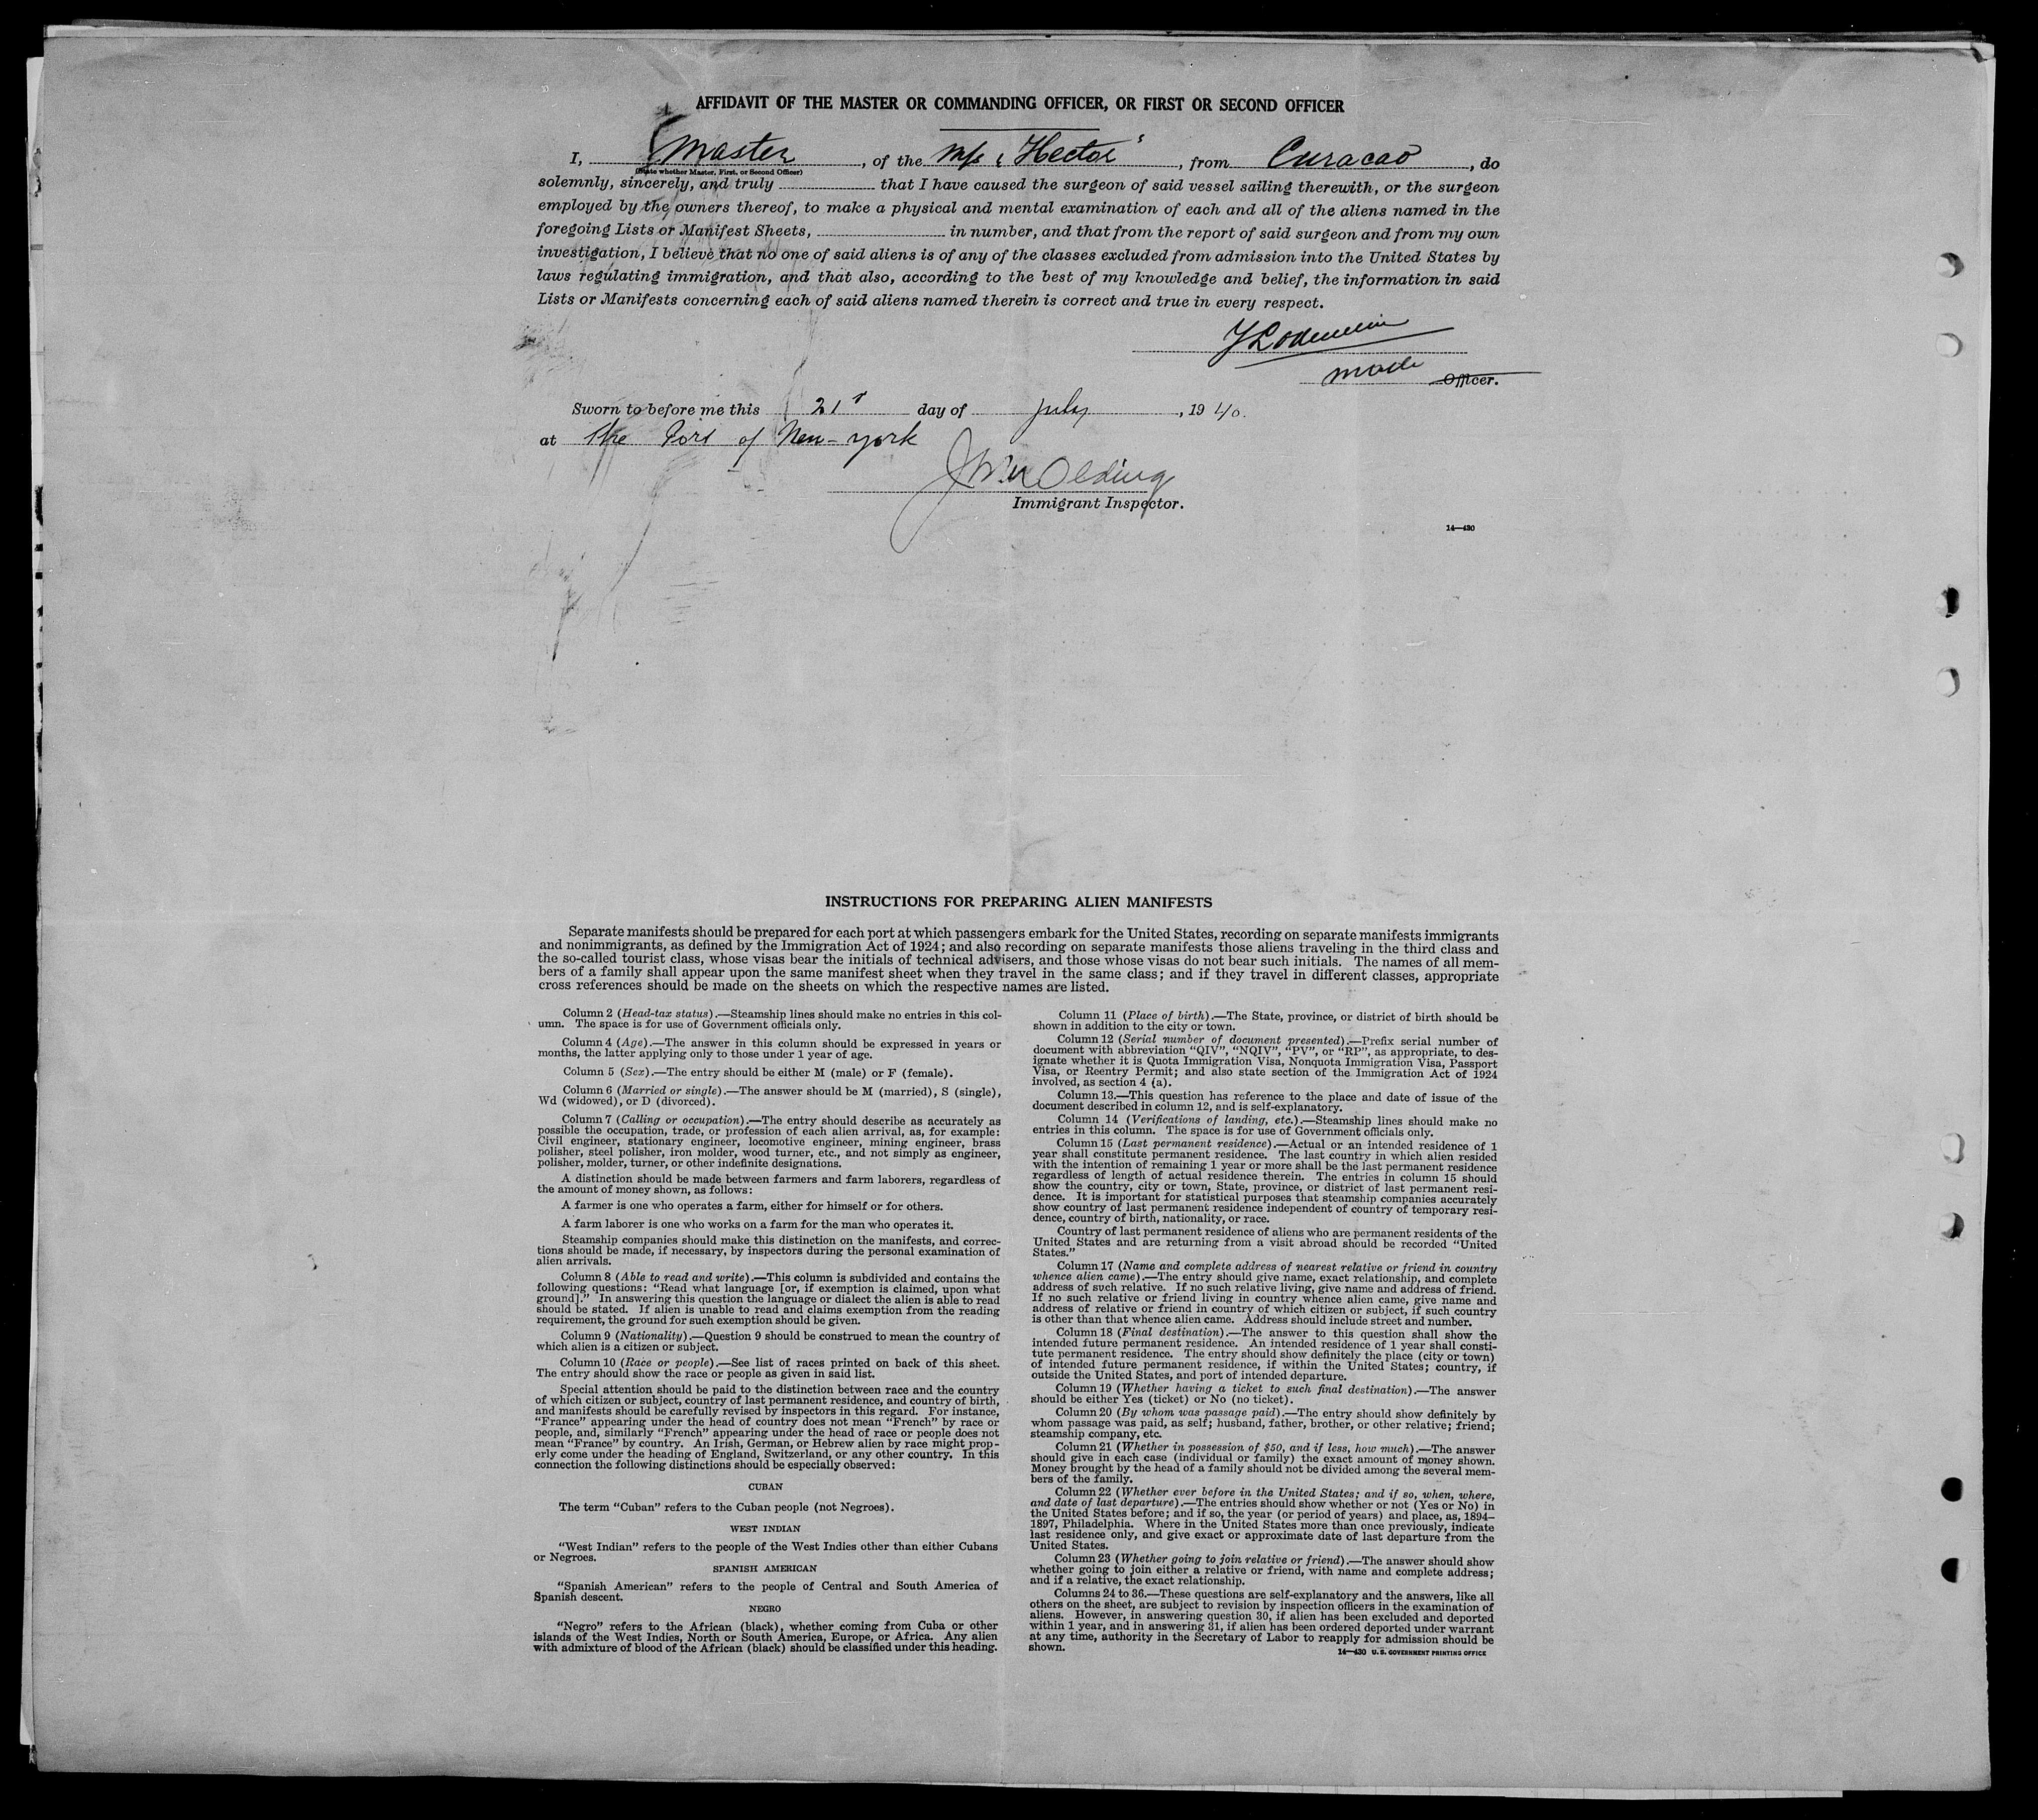 AFFIDAVIT OF THE MASTER OR COMMANDING OFFICER, OR FIRST OR SECOND OFFICER
I, Master, of the M/s "Hector", from Curacao, do
(State whether Master, First, or Second Officer)
solemnly, sincerely, and truly that I have caused the surgeon of said vessel sailing therewith, or the surgeon
employed by the owners thereof, to make a physical and mental examination of each and all of the aliens named in the
foregoing Lists or Manifest Sheets, in number, and that from the report of said surgeon and from my own
investigation, I believe that no one of said aliens is of any of the classes excluded from admission into the United States by
laws regulating immigration, and that also, according to the best of my knowledge and belief, the information in said
Lists or Manifests concerning each of said aliens named therein is correct and true in every respect.
Officer.
Sworn to before me this 21st day of July, 1940.
at the Port of New-york
Immigrant Inspector.
14—430
INSTRUCTIONS FOR PREPARING ALIEN MANIFESTS
Separate manifests should be prepared for each port at which passengers embark for the United States, recording on separate manifests immigrants
and nonimmigrants, as defined by the Immigration Act of 1924; and also recording on separate manifests those aliens traveling in the third class and
the so-called tourist class, whose visas bear the initials of technical advisers, and those whose visas do not bear such initials. The names of all mem-
bers of a family shall appear upon the same manifest sheet when they travel in the same class; and if they travel in different classes, appropriate
cross references should be made on the sheets on which the respective names are listed.
Column 2 (Head-tax status).—Steamship lines should make no entries in this col-
umn. The space is for use of Government officials only.
Column 4 (Age).—The answer in this column should be expressed in years or
months, the latter applying only to those under 1 year of age.
Column 5 (Sex).—The entry should be either M (male) or F (female).
Column 6 (Married or single).—The answer should be M (married), S (single),
Wd (widowed), or D (divorced).
Column 7 (Calling or occupation).—The entry should describe as accurately as
possible the occupation, trade, or profession of each alien arrival, as, for example:
Civil engineer, stationary engineer, locomotive engineer, mining engineer, brass
polisher, steel polisher, iron molder, wood turner, etc., and not simply as engineer,
polisher, molder, turner, or other indefinite designations.
A distinction should be made between farmers and farm laborers, regardless of
the amount of money shown, as follows:
A farmer is one who operates a farm, either for himself or for others.
A farm laborer is one who works on a farm for the man who operates it.
Steamship companies should make this distinction on the manifests, and correc-
tions should be made, if necessary, by inspectors during the personal examination of
alien arrivals.
Column 8 (Able to read and write).—This column is subdivided and contains the
following questions: "Read what language [or, if exemption is claimed, upon what
ground]." In answering this question the language or dialect the alien is able to read
should be stated. If alien is unable to read and claims exemption from the reading
requirement, the ground for such exemption should be given.
Column 9 (Nationality).—Question 9 should be construed to mean the country of
which alien is a citizen or subject.
Column 10 (Race or people).—See list of races printed on back of this sheet.
The entry should show the race or people as given in said list.
Special attention should be paid to the distinction between race and the country
of which citizen or subject, country of last permanent residence, and country of birth,
and manifests should be carefully revised by inspectors in this regard. For instance,
"France" appearing under the head of country does not mean "French" by race or
people, and, similarly "French" appearing under the head of race or people does not
mean "France" by country. An Irish, German, or Hebrew alien by race might prop-
erly come under the heading of England, Switzerland, or any other country. In this
connection the following distinctions should be especially observed:
CUBAN
The term "Cuban" refers to the Cuban people (not Negroes).
WEST INDIAN
"West Indian" refers to the people of the West Indies other than either Cubans
or Negroes.
SPANISH AMERICAN
"Spanish American" refers to the people of Central and South America of
Spanish descent.
NEGRO
"Negro" refers to the African (black), whether coming from Cuba or other
islands of the West Indies, North or South America, Europe, or Africa. Any alien
with admixture of blood of the African (black) should be classified under this heading.
Column 11 (Place of birth).—The State, province, or district of birth should be
shown in addition to the city or town.
Column 12 (Serial number of document presented).—Prefix serial number of
document with abbreviation "QIV", "NQIV", "PV", or "RP", as appropriate, to des-
ignate whether it is Quota Immigration Visa, Nonquota Immigration Visa, Passport
Visa, or Reentry Permit; and also state section of the Immigration Act of 1924
involved, as section 4 (a).
Column 13.—This question has reference to the place and date of issue of the
document described in column 12, and is self-explanatory.
Column 14 (Verifications of landing, etc.).—Steamship lines should make no
entries in this column. The space is for use of Government officials only.
Column 15 (Last permanent residence).—Actual or an intended residence of 1
year shall constitute permanent residence. The last country in which alien resided
with the intention of remaining 1 year or more shall be the last permanent residence
regardless of length of actual residence therein. The entries in column 15 should
show the country, city or town, State, province, or district of last permanent resi-
dence. It is important for statistical purposes that steamship companies accurately
show country of last permanent residence independent of country of temporary resi-
dence, country of birth, nationality, or race.
Country of last permanent residence of aliens who are permanent residents of the
United States and are returning from a visit abroad should be recorded "United
States."
Column 17 (Name and complete address of nearest relative or friend in country
whence alien came).—The entry should give name, exact relationship, and complete
address of such relative. If no such relative living, give name and address of friend.
If no such relative or friend living in country whence alien came, give name and
address of relative or friend in country of which citizen or subject, if such country
is other than that whence alien came. Address should include street and number.
Column 18 (Final destination).—The answer to this question shall show the
intended future permanent residence. An intended residence of 1 year shall consti-
tute permanent residence. The entry should show definitely the place (city or town)
of intended future permanent residence, if within the United States; country, if
outside the United States, and port of intended departure.
Column 19 (Whether having a ticket to such final destination).—The answer
should be either Yes (ticket) or No (no ticket).
Column 20 (By whom was passage paid).—The entry should show definitely by
whom passage was paid, as self; husband, father, brother, or other relative; friend;
steamship company, etc.
Column 21 (Whether in possession of $50, and if less, how much).—The answer
should give in each case (individual or family) the exact amount of money shown.
Money brought by the head of a family should not be divided among the several mem-
bers of the family.
Column 22 (Whether ever before in the United States; and if so, when, where,
and date of last departure).—The entries should show whether or not (Yes or No) in
the United States before; and if so, the year (or period of years) and place, as, 1894–
1897, Philadelphia. Where in the United States more than once previously, indicate
last residence only, and give exact or approximate date of last departure from the
United States.
Column 23 (Whether going to join relative or friend).—The answer should show
whether going to join either a relative or friend, with name and complete address;
and if a relative, the exact relationship.
Columns 24 to 36.—These questions are self-explanatory and the answers, like all
others on the sheet, are subject to revision by inspection officers in the examination of
aliens. However, in answering question 30, if alien has been excluded and deported
within 1 year, and in answering 31, if alien has been ordered deported under warrant
at any time, authority in the Secretary of Labor to reapply for admission should be
shown.
14—430 U.S. GOVERNMENT PRINTING OFFICE